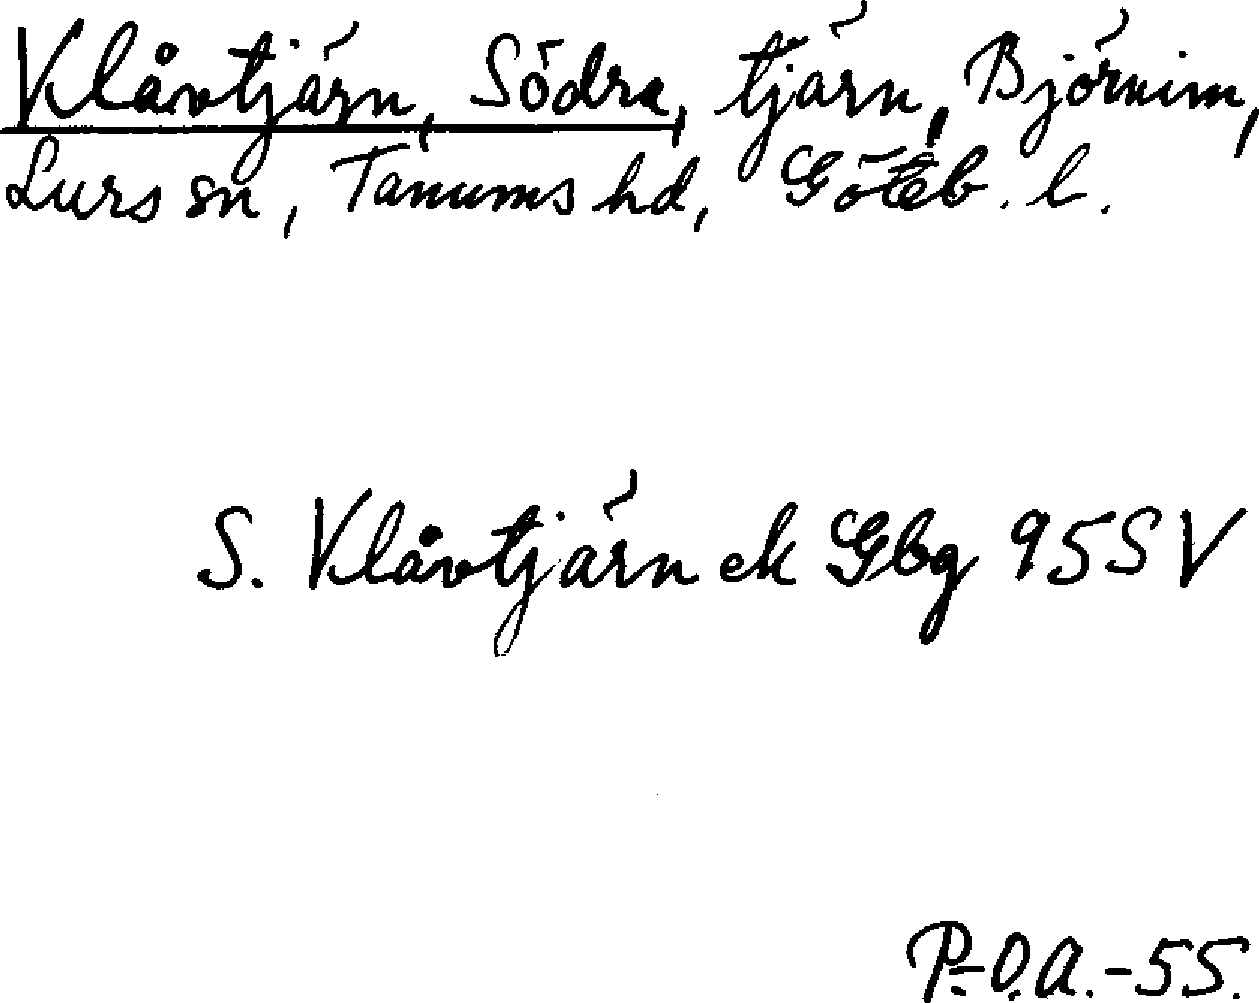 Klåvtjärn, Södra, tjärn, Björnim,
Lurs sn, Tanums hd, Göteb. l.
S. Klåvtjärn ek Gbg 95 SV
P.-O.A.-55.